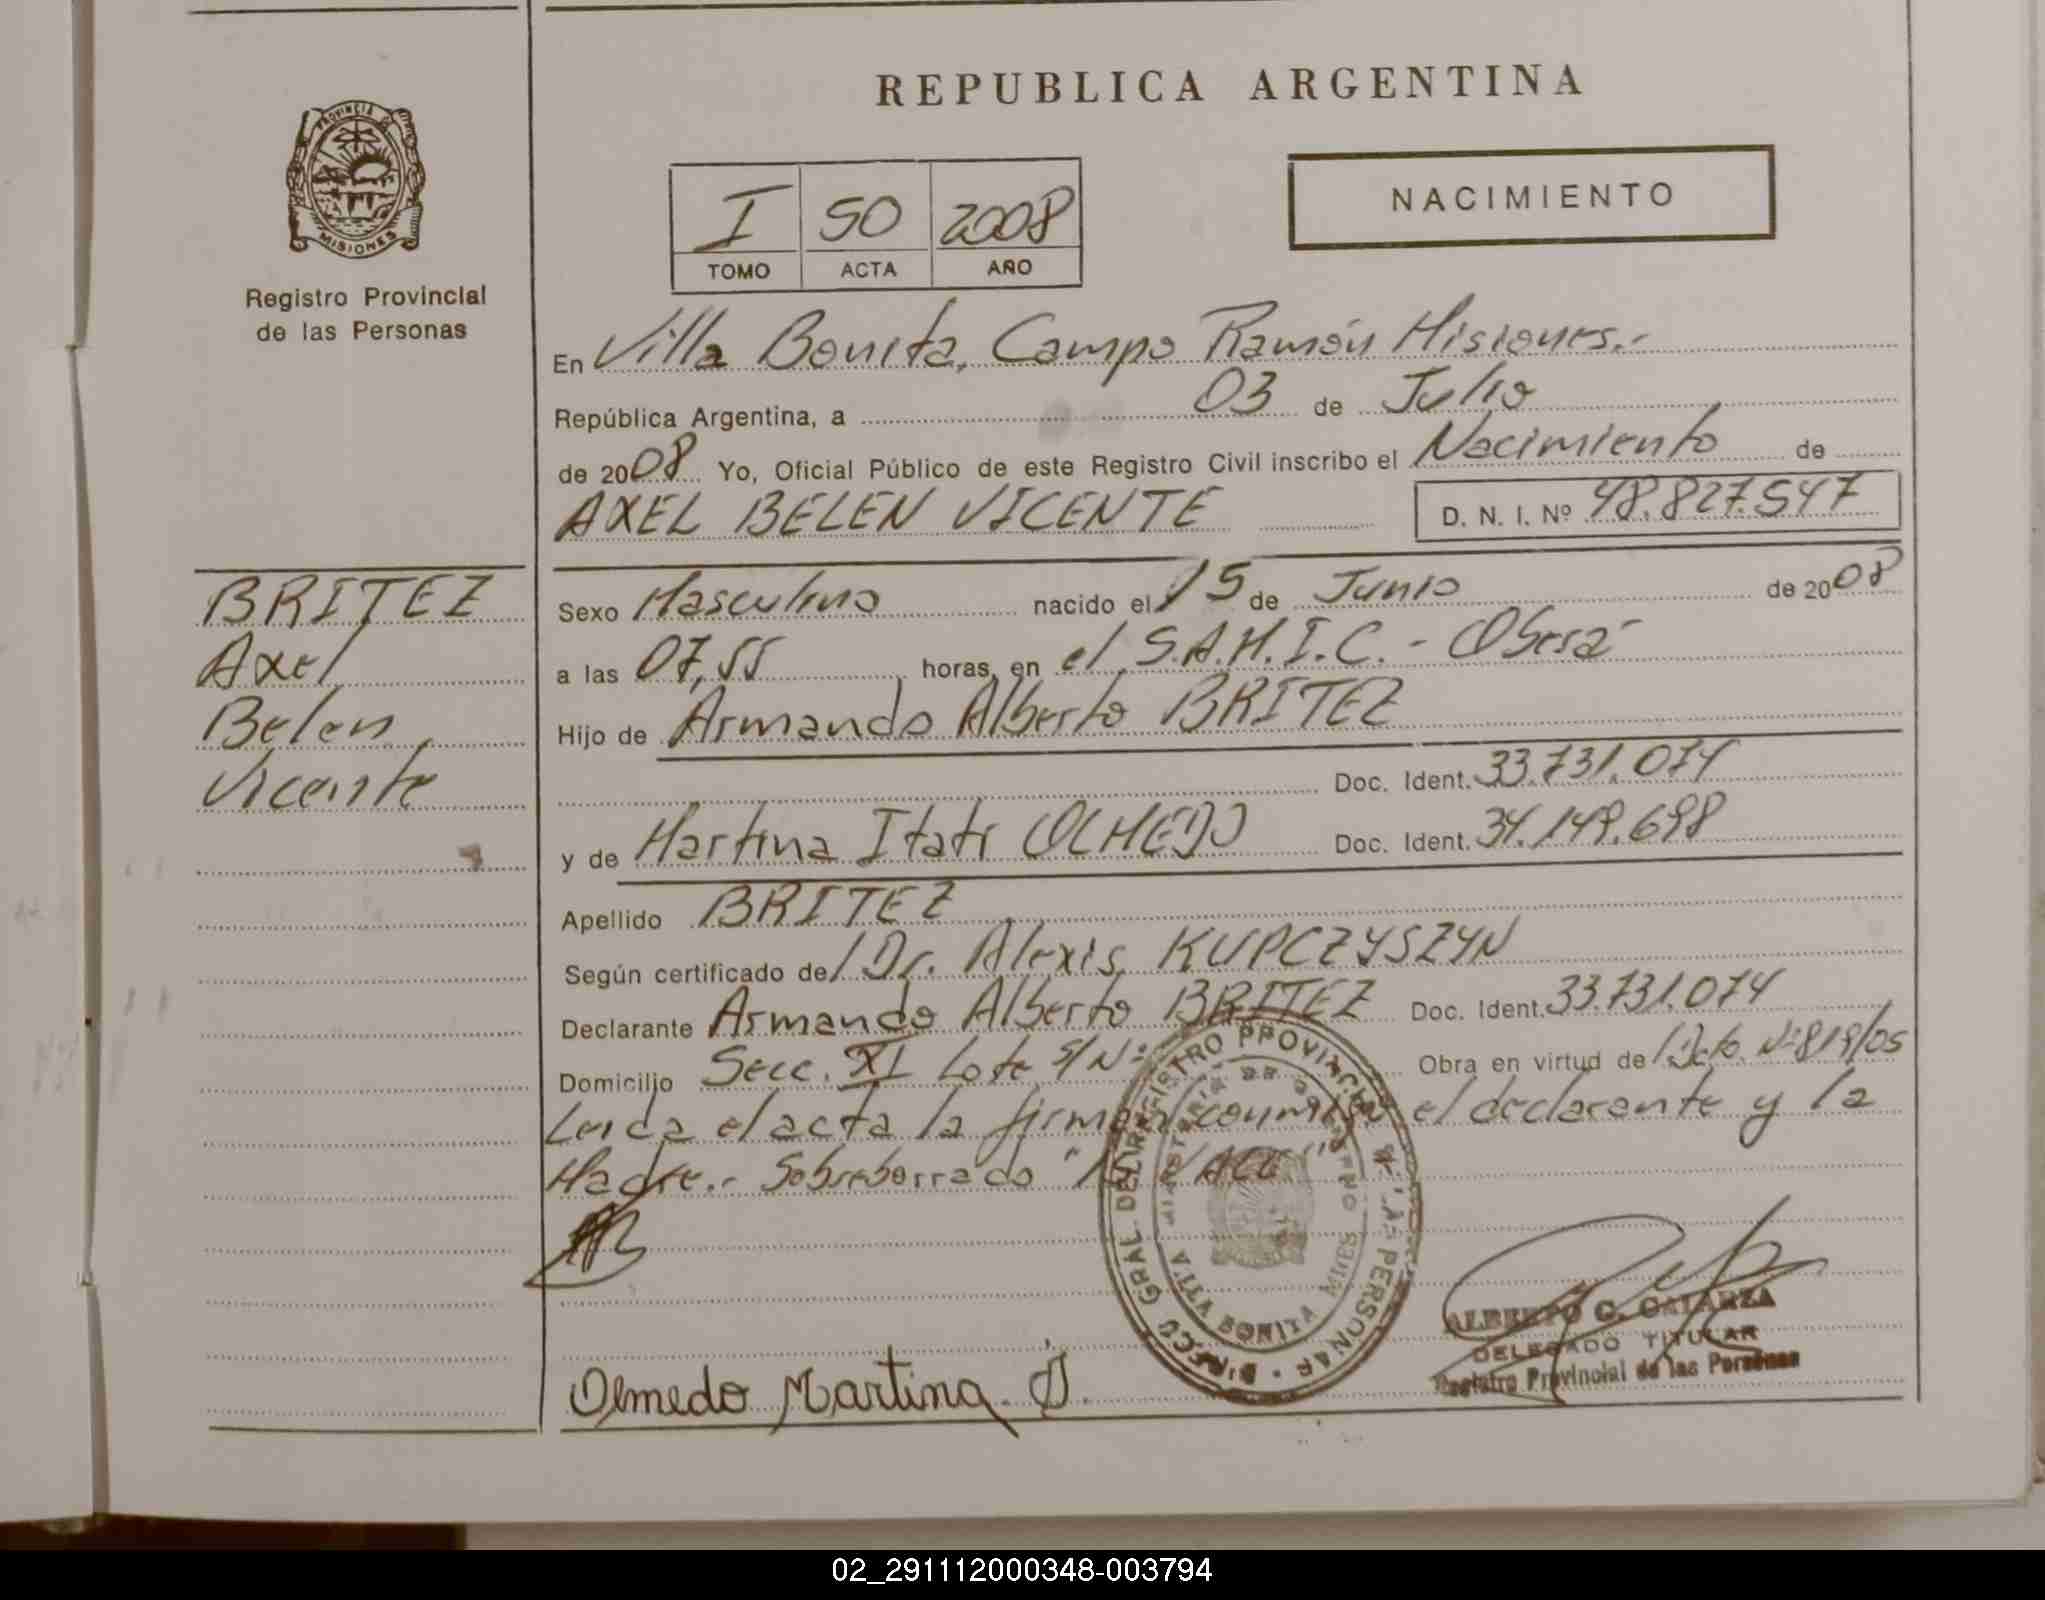 REPUBLICA ARGENTINA
PROVINCIA DE
MISIONES
Registro Provincial
de las Personas
I 50 2008
TOMO ACTA AÑO
NACIMIENTO
En Villa Bonita, Campo Ramón Misiones.-
República Argentina, a 03 de Julio
de 2008 Yo, Oficial Público de este Registro Civil inscribo el Nacimiento de
AXEL BELEN VICENTE D. N. I. Nº 48.827.547
BRITEZ
Axel
Belen
Vicente
Sexo Masculino nacido el 15 de Junio de 2008
a las 07,55 horas, en el S.A.M.I.C. - Oberá
Hijo de Armando Alberto BRITEZ
Doc. Ident. 33.731.074
y de Martina Itati OLMEDO Doc. Ident. 34.149.698
Apellido BRITEZ
Según certificado del Dr. Alexis KUPCZYSZYN
Declarante Armando Alberto BRITEZ Doc. Ident. 33.731.074
Domicilio Secc. XI Lote S/Nº Obra en virtud de Dcto. Nº 819/05
Leida el acta la firman conmigo el declarante y la
Madre.- Sobreborrado
DIRECC GRAL DEL REGISTRO PROVINCIAL DE LAS PERSONAS
MINISTERIO DE GOBIERNO
VILLA BONITA MNES
ALBERTO G. GALARZA
DELEGADO TITULAR
Registro Provincial de las Personas
Olmedo Martina.
02_291112000348-003794